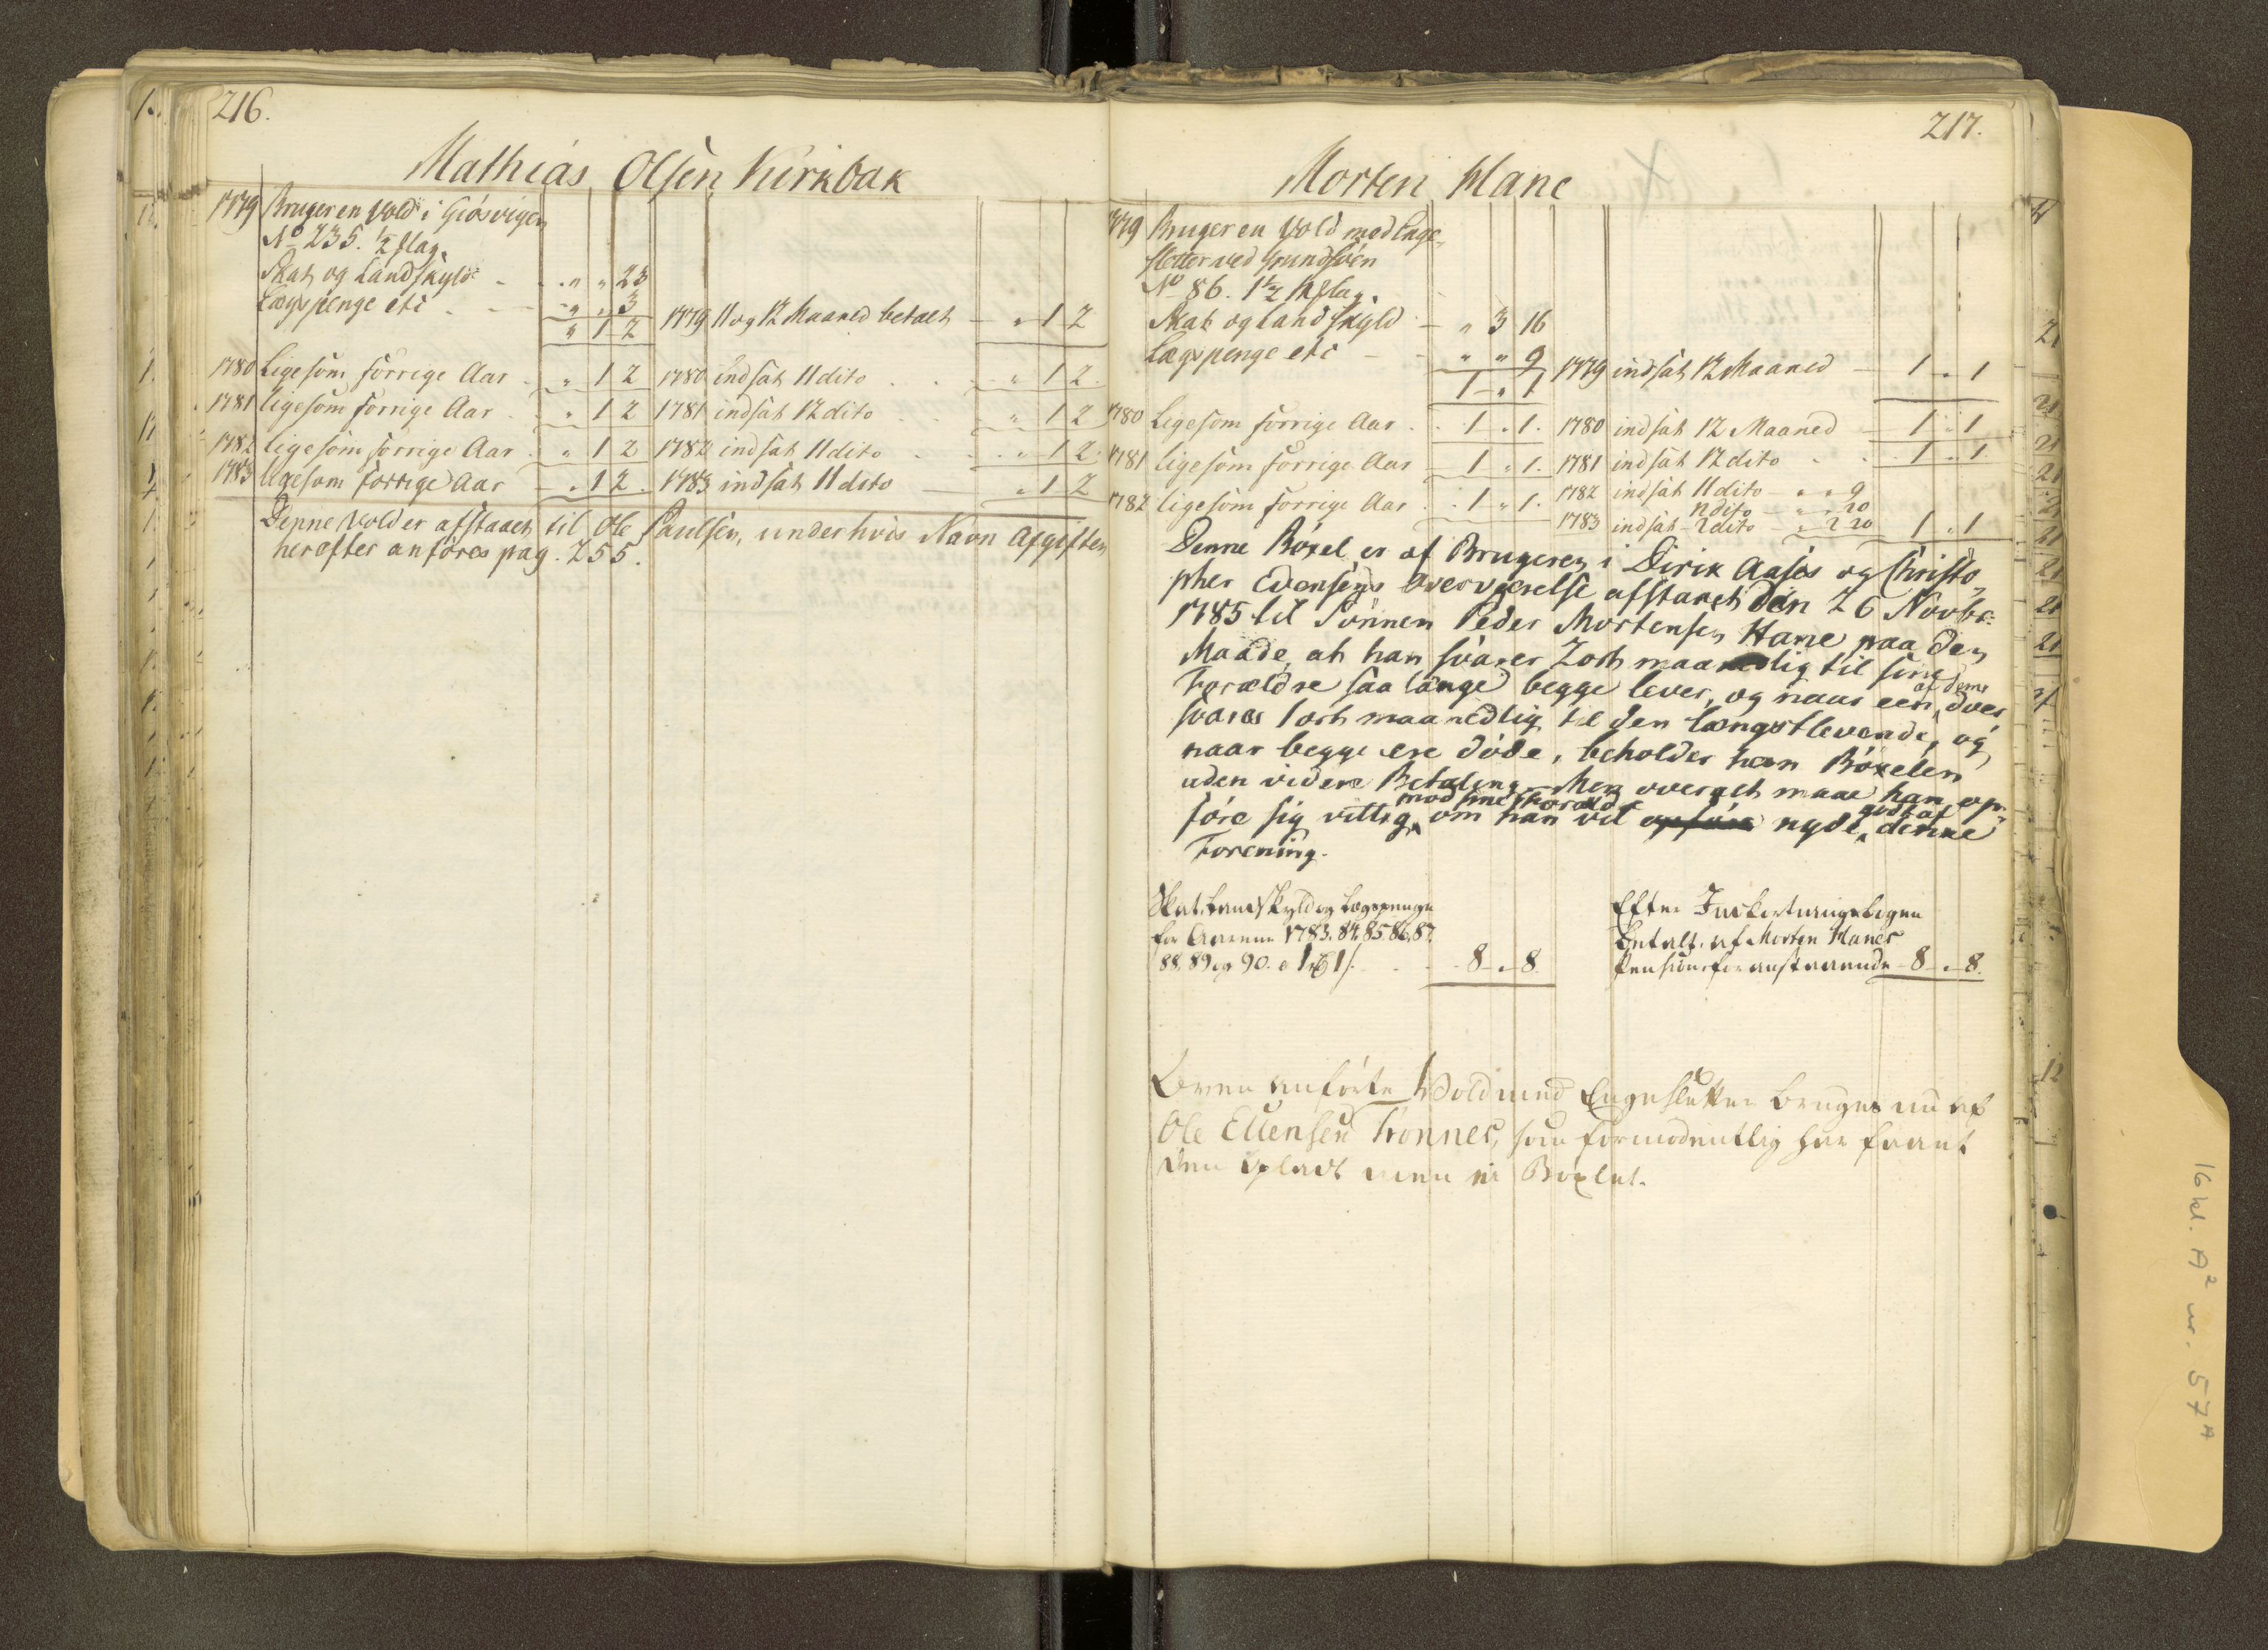 216.
Mathias Olsen Kirkbak
1779 Bruger en Vold i Giøsvigen
No 235. ½ flag.
Skat og Landskyld - . " " 23
Lægspenge etc . - - " . 3
" 1 2
1779 11 og 12 Maaned betalt - " 1 2
1780 Ligesom forrige Aar . " 1 2 1780 indsat 11 dito . . " 1 2.
1781 ligesom forrige Aar . " 1 2 1781 indsat 12 dito . . " 1 2
1782 ligesom forrige Aar . " 1 2 1782 indsat 11 dito . . " 1 2.
1783 ligesom forrige Aar - " 1 2. 1783 indsat 11 dito - " 1 2
Denne Vold er afstaaet til Ole Paulsen, under hvis Navn Afgiften
herefter anføres pag. 255.
217.
Morten Hane
1779 Bruger en Vold med Enge-
sletter ved Grundsøen
No 86. 1½ flag.
Skat og Landskyld - " 3 16
Lægspenge etc - - " " 9
1 " 1
1779 indsat 12 Maaned - 1 " 1
1780 Ligesom forrige Aar . . 1 " 1. 1780 indsat 12 Maaned - 1 " 1
1781 ligesom forrige Aar - 1 " 1. 1781 indsat 12 dito . . 1 " 1
1782 ligesom forrige Aar . . 1 " 1. 1782 indsat 11 dito - " " 9
12 dito - " " 20
1783 indsat 2 dito - " 2 20 1 " 1
Denne Böxel er af Brugeren i Dirik Aases og Christo-
pher Evensens Overværelse afstaaet den 26 Novbr:
1785 til Sönnen Peder Mortensen Hane paa den
Maade, at han svarer 2 ort maanedlig til sine
Forældre saa længe begge lever, og naar een af dem döer
svarer 1 ort maanedlig til den længstlevende, og
naar begge ere döde, beholder han Böxelen
uden videre Betaling. Men overalt maae han op-
føre sig villig mod sine Forældre om han vil nyde godt af denne
Forening.
Skat, Landskyld og Lægspenge
for Aarene 1783. 84. 85. 86. 87.
88. 89 og 90. a 1 rd 1 s. . . 8 " 8
Efter Inkorteringsbogen
betalt af Morten Hanes
Pension foranstaaende 8 " 8.
Oven anførte Vold med Engesletter bruges nu af
Ole Ellensen Trönnes, som formodentlig har faaet
den opladt men ei Böxlet.
16 kl. A² nr. 57 A